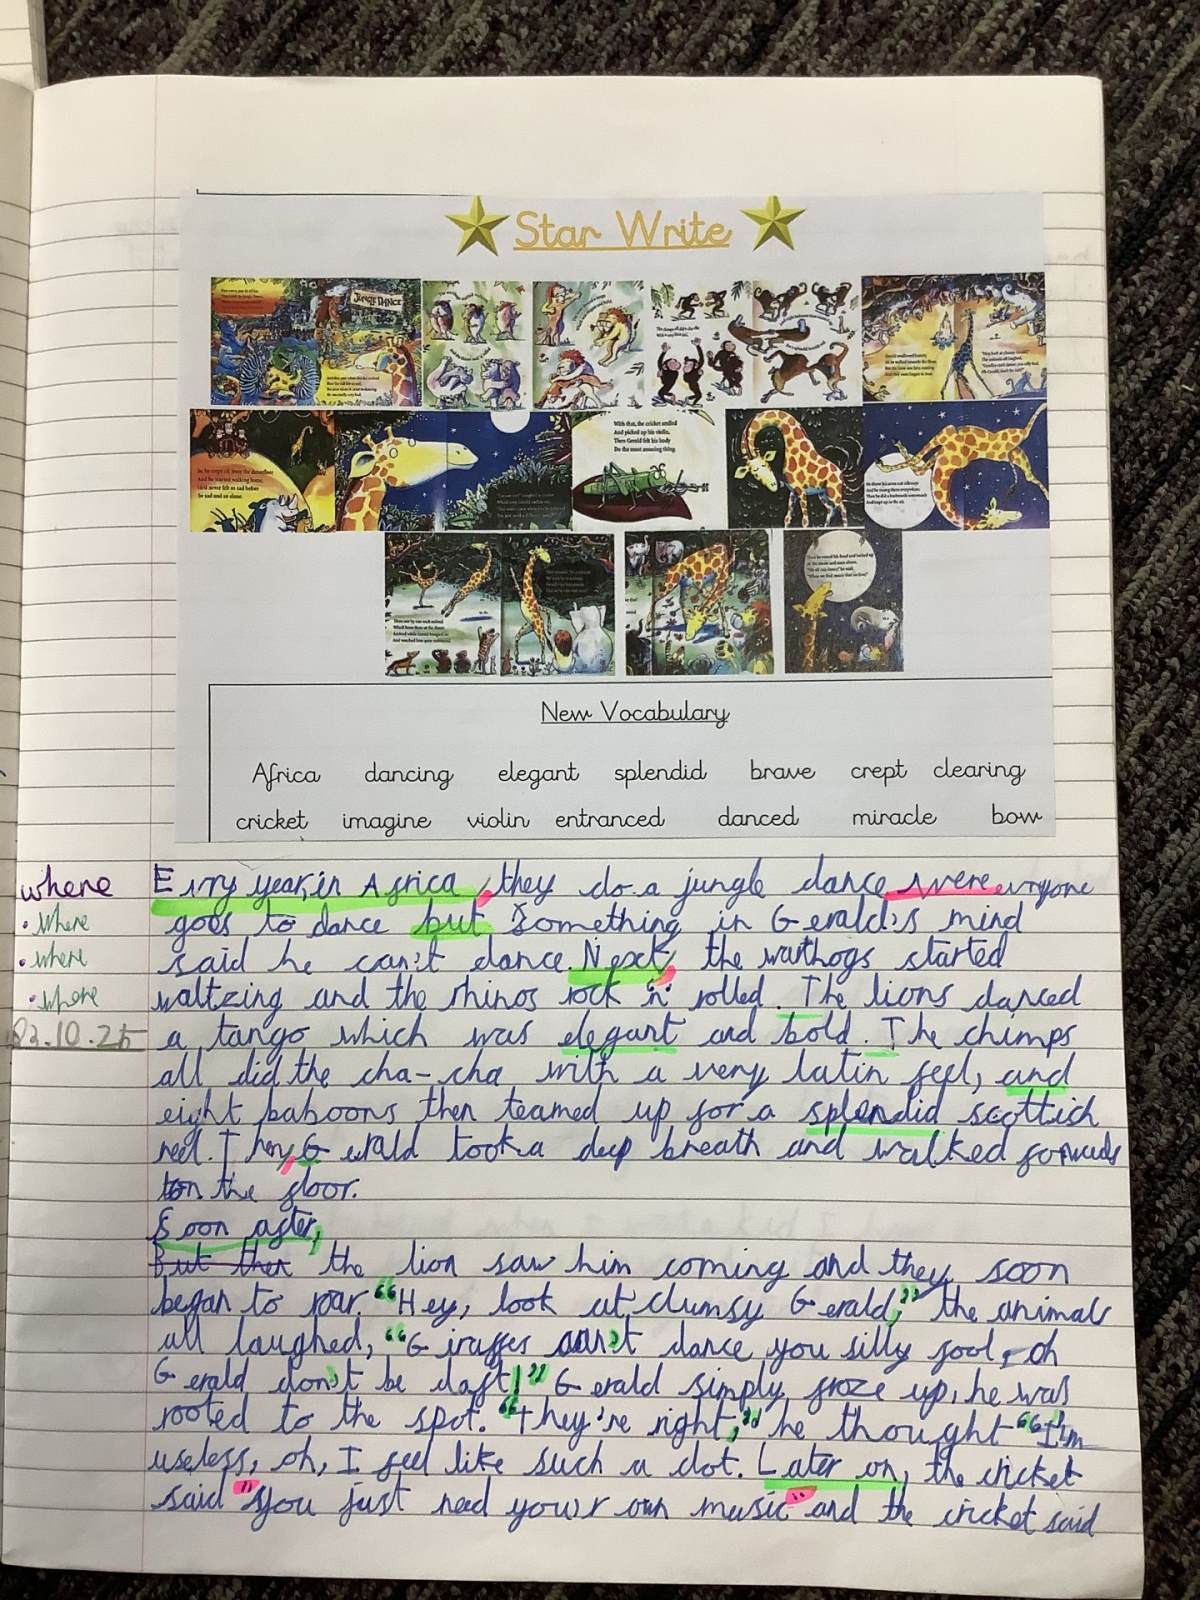 Star Write
JUNGLE DANCE
With that, the cricket smiled
And picked up his violin.
Then Gerald felt his body
Do the most amazing thing.
New Vocabulary
Africa dancing elegant splendid brave crept clearing
cricket imagine violin entranced danced miracle bow
where
• where
• where
• where
03.10.25
Every year, in Africa, they do a jungle dance were everyone
goes to dance but something in Gerald's mind
said he can't dance. Next, the warthogs started
waltzing and the rhinos rock 'n' rolled. The lions danced
a tango which was elegant and bold. The chimps
all did the cha-cha with a very latin feel, and
eight baboons then teamed up for a splendid scottish
reel. Then, Gerald took a deep breath and walked forwards
on the floor.
Soon after,
But then the lion saw him coming and they soon
began to roar. "Hey, look at clumsy Gerald," the animals
all laughed, "Giraffes can't dance you silly fool, oh
Gerald don't be daft!" Gerald simply froze up, he was
rooted to the spot. "They're right," he thought "I'm
useless, oh, I feel like such a clot. Later on, the cricket
said "you just need your own music" and the cricket said